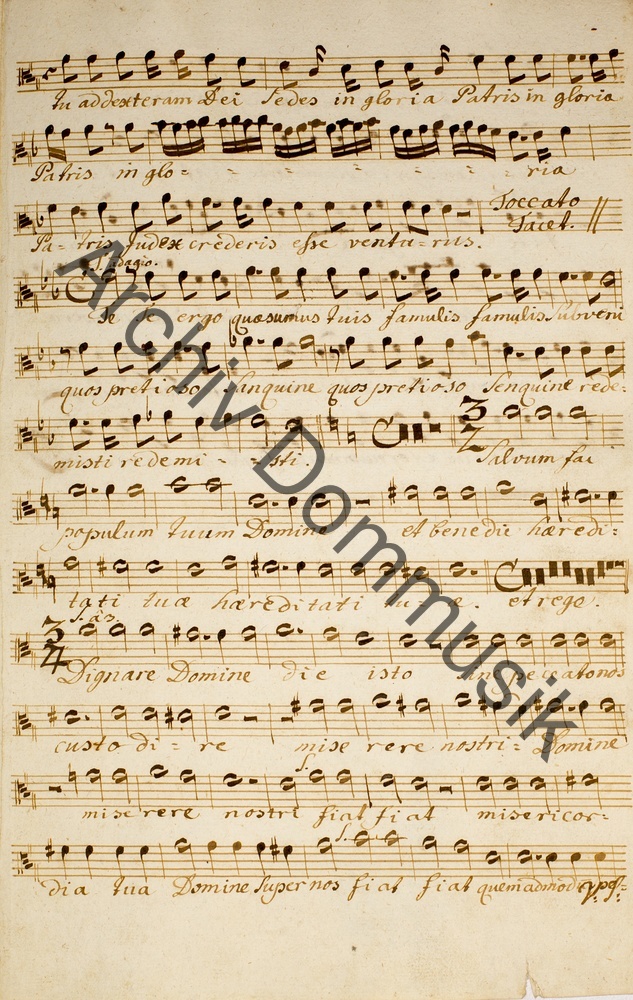 tu ad dexteram Dei Sedes in gloria Patris in gloria
Patris in glo- - - - - - - ria
Pa-tris Judex crederis esse ventu-rus. Toccato Tacet.
Adagio.
Te Te ergo quæsumus tuis famulis famulis Subveni
quos pretioso Sanguine quos pretioso Senquine rede-
misti redemi- - sti. 3/2 Salvum fac
populum tuum Domine et benedic hæredi-
tati tuæ hæreditati tuæ. et rege.
3/4 Dignare Domine die isto peccato nos
custo di-re mise rere nostri- Domine
miserere nostri fiat fiat misericor-
dia tua Domine Super nos fiat fiat quemadmodu
Archiv Dommusik